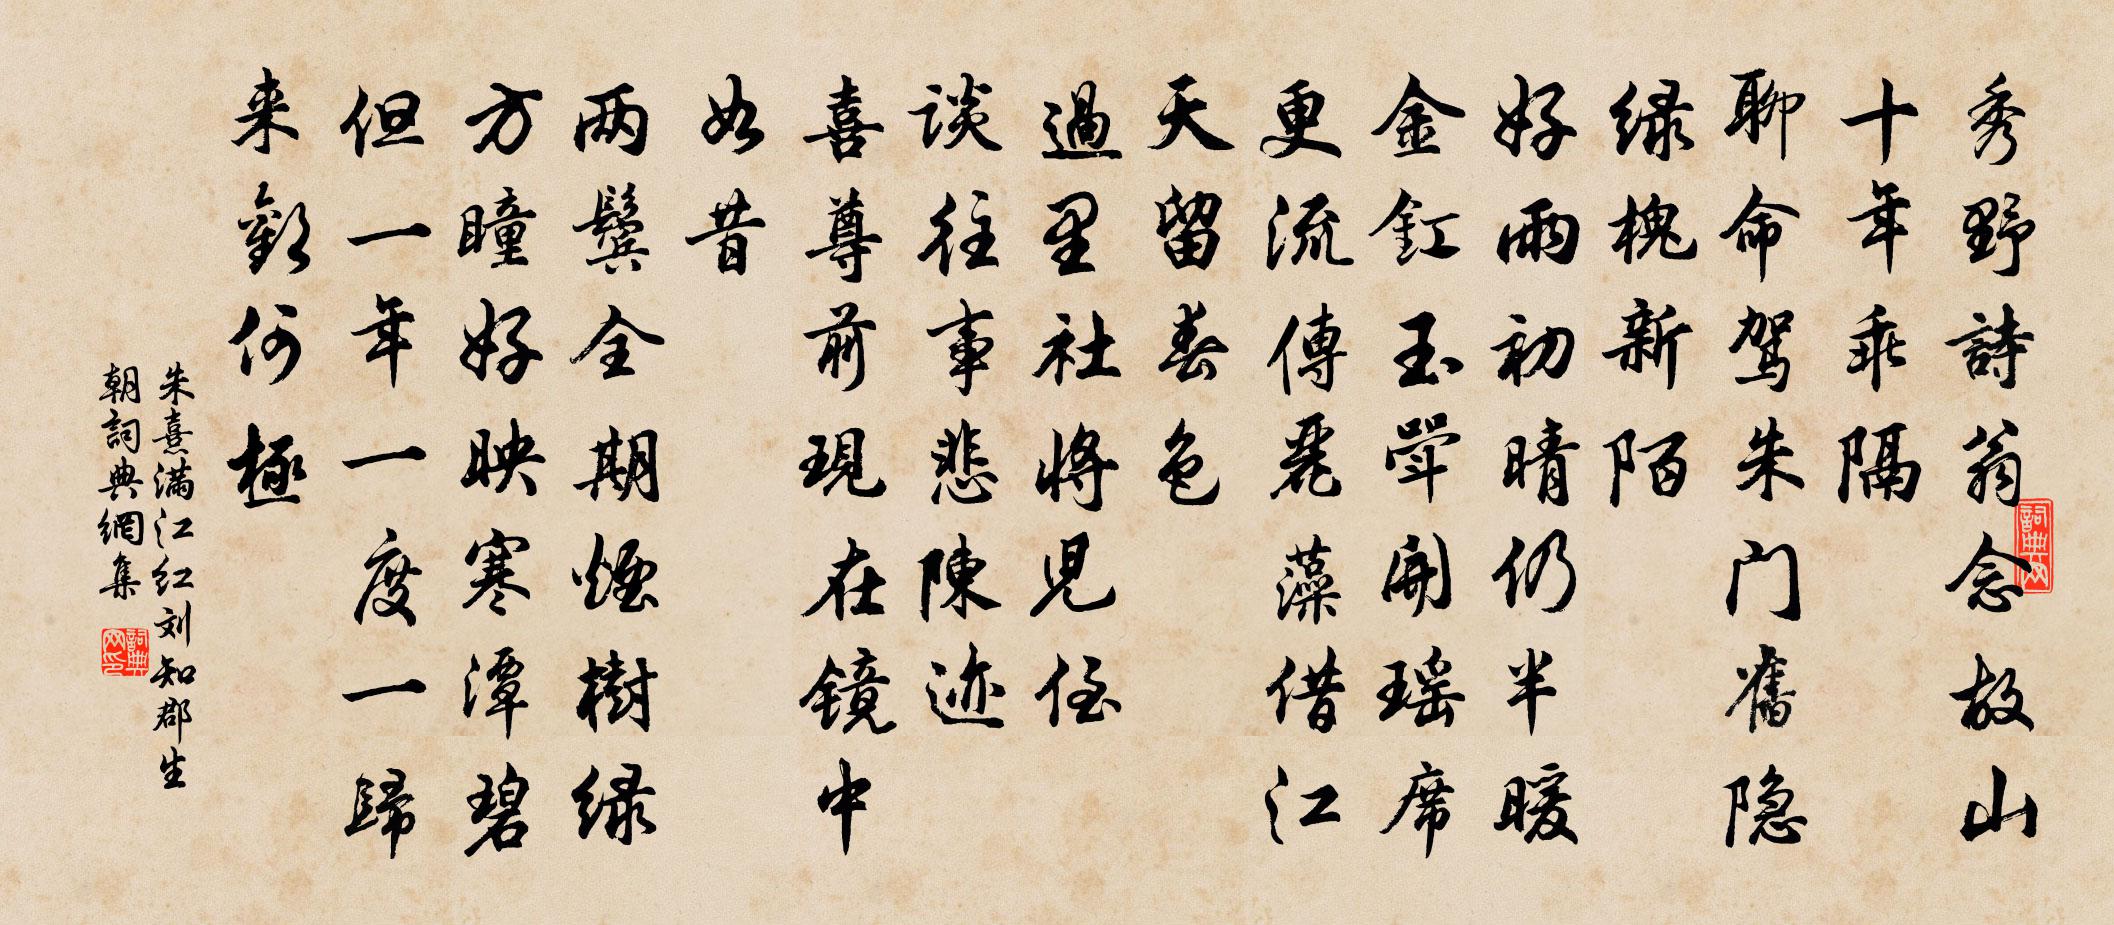 秀野詩翁念故山
十年乖隔
聊命駕朱门舊隐
绿槐新陌
好雨初晴仍半暖
金釭玉斝開瑶席
更流傳麗藻借江
天留春色
過里社将児侄
談往事悲陳迹
喜尊前現在镜中
如昔
两鬓全期煙樹绿
方瞳好映寒潭碧
但一年一度一歸
来歡何極
朱熹满江红刘知郡生
朝詞典網集
詞典网
詞典网印